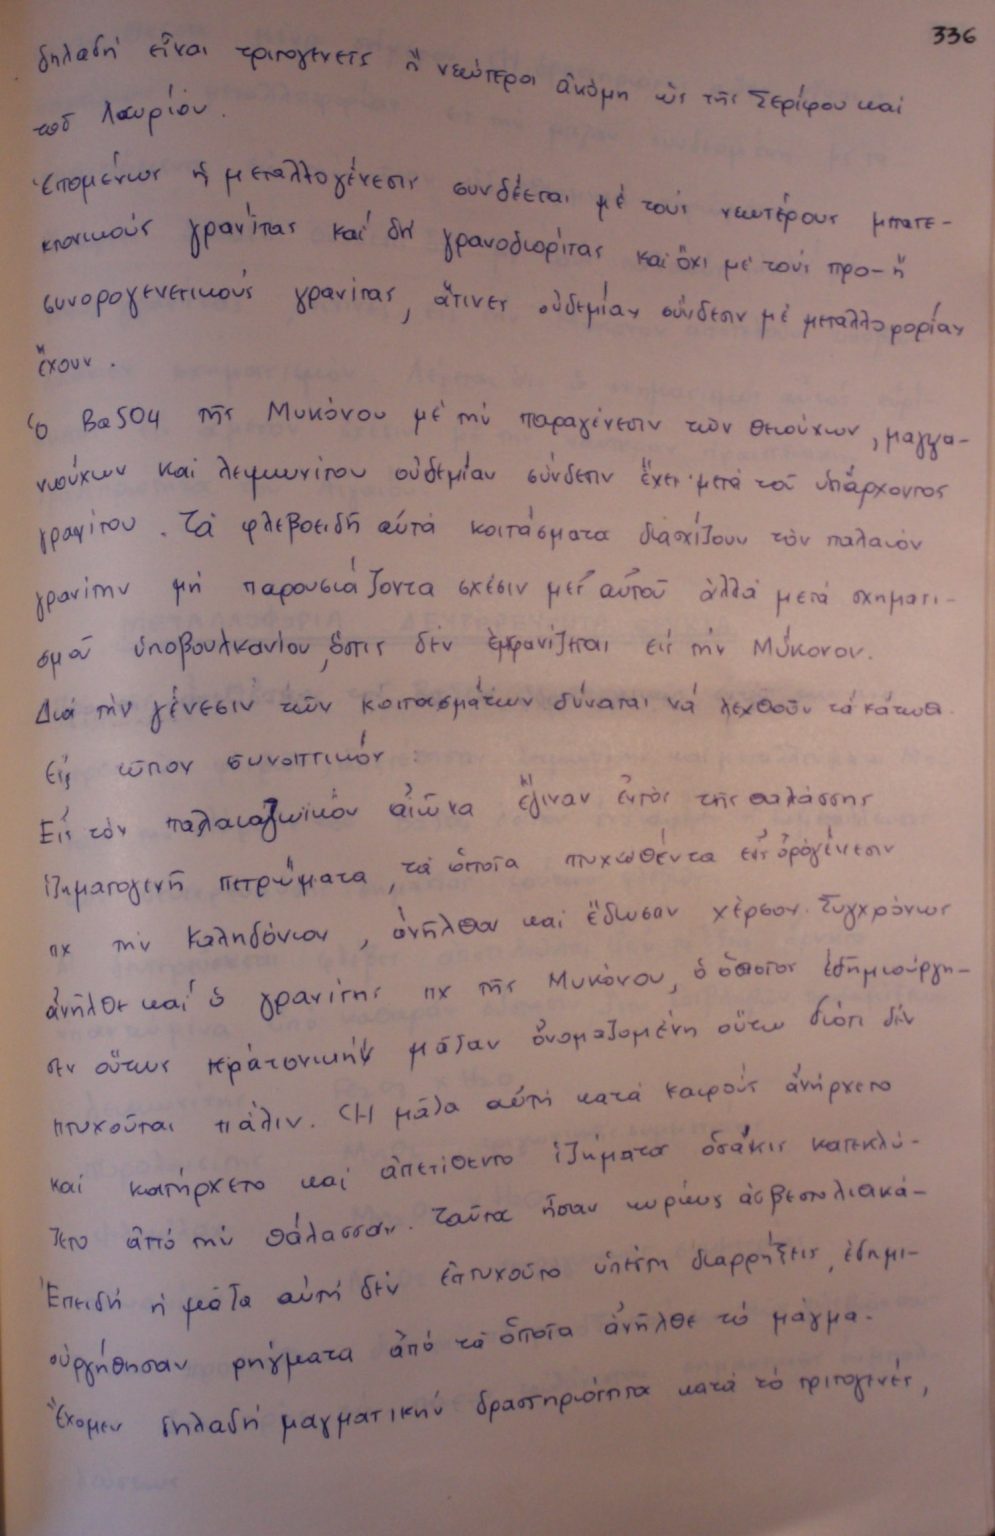 336
δηλαδή εἶναι τριτογενεῖς ἤ νεώτεροι ἀκόμη ὡς τῆς Σερίφου καί
τοῦ Λαυρίου.
Ἑπομένως ἡ μεταλλογένεσις συνδέεται μέ τούς νεωτέρους μπατε-
κτονικούς γρανίτας καί δή γρανοδιορίτας καί ὄχι μέ τούς προ- ἤ
συνορογενετικούς γρανίτας, ἅτινες οὐδεμίαν σύνδεσιν μέ μεταλλοφορίαν
ἔχουν.
Ὁ BaSO4 τῆς Μυκόνου μέ τήν παραγένεσιν τῶν θειούχων, μαγγα-
νιούχων καί λειμωνίτου οὐδεμίαν σύνδεσιν ἔχει μετά τοῦ ὑπάρχοντος
γρανίτου. Τά φλεβοειδῆ αὐτά κοιτάσματα διασχίζουν τόν παλαιόν
γρανίτην μή παρουσιάζοντα σχέσιν μετ' αὐτοῦ ἀλλά μετά σχηματι-
σμοῦ ὑποβουλκανίου, ὅστις δέν ἐμφανίζεται εἰς τήν Μύκονον.
Διά τήν γένεσιν τῶν κοιτασμάτων δύναται νά λεχθοῦν τά κάτωθι
εἰς τύπον συνοπτικόν:
Εἰς τόν παλαιοζωϊκόν αἰῶνα ἔγιναν ἐντός τῆς θαλάσσης
ἰζηματογενῆ πετρώματα, τά ὁποῖα πτυχωθέντα εἰς ὀρογένεσιν
πχ τήν Καληδόνιον, ἀνῆλθον καί ἔδωσαν χέρσον. Συγχρόνως
ἀνῆλθε καί ὁ γρανίτης πχ τῆς Μυκόνου, ὁ ὁποῖος ἐδημιούργη-
σεν οὕτως κρατονικήν μᾶζαν ὀνομαζομένη οὕτω διότι δέν
πτυχοῦται πάλιν. Ἡ μᾶζα αὐτή κατά καιρούς ἀνήρχετο
καί κατήρχετο καί ἀπετίθεντο ἰζήματα ὁσάκις κατεκλύ-
ζετο ἀπό τήν θάλασσαν. Ταῦτα ἦσαν κυρίως ἀσβεστολιθικά-
Ἐπειδή ἡ μᾶζα αὐτή δέν ἐπτυχοῦτο ὑπέστη διαρρήξεις, ἐδημι-
ουργήθησαν ρήγματα ἀπό τά ὁποῖα ἀνῆλθε τό μάγμα.
Ἔχομεν δηλαδή μαγματικήν δραστηριότητα κατά τό τριτογενές,